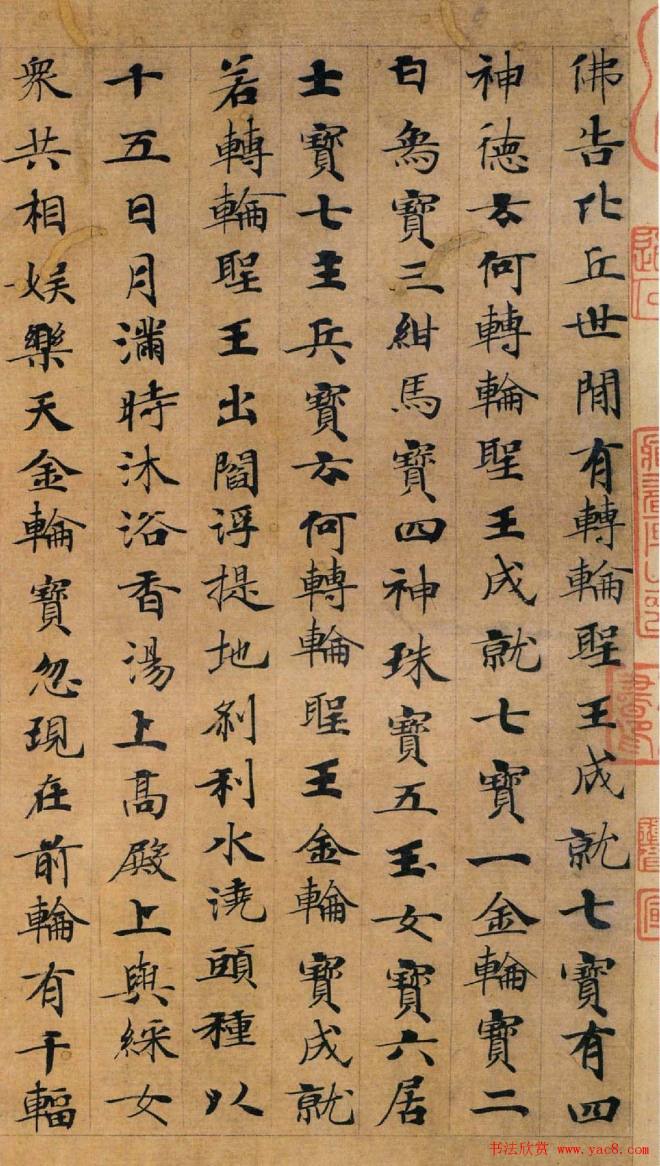 佛告比丘世閒有轉輪聖王成就七寶有四
神德云何轉輪聖王成就七寶一金輪寶二
白象寶三紺馬寶四神珠寶五玉女寶六居
士寶七主兵寶云何轉輪聖王金輪寶成就
若轉輪聖王出閻浮提地剎利水澆頭種以
十五日月滿時沐浴香湯上高殿上與綵女
衆共相娛樂天金輪寶忽現在前輪有千輻
书法欣赏 www.yac8.com